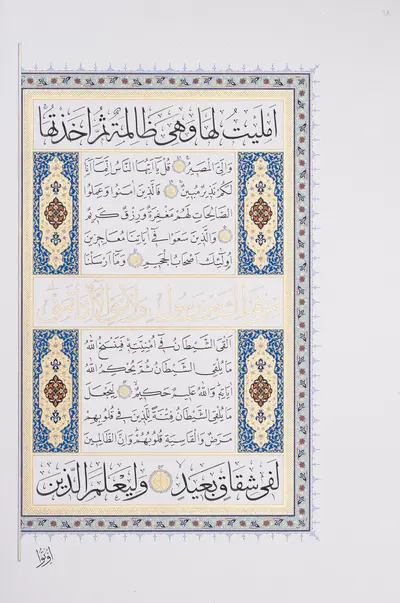 اَمْلَيْتُ لَهَا وَهِيَ ظَالِمَةٌ ثُمَّ اَخَذْتُهَا
وَاِلَيَّ الْمَصِيرُ ۝ قُلْ يَٓا اَيُّهَا النَّاسُ اِنَّمَٓا اَنَا۬
لَكُمْ نَذِيرٌ مُبِينٌ ۝ فَالَّذِينَ اٰمَنُوا وَعَمِلُوا
الصَّالِحَاتِ لَهُمْ مَغْفِرَةٌ وَرِزْقٌ كَرِيمٌ
۝ وَالَّذِينَ سَعَوْا فِٓي اٰيَاتِنَا مُعَاجِزِينَ
اُو۬لٰٓئِكَ اَصْحَابُ الْجَحِيمِ ۝ وَمَٓا اَرْسَلْنَا
مِنْ قَبْلِكَ مِنْ رَسُولٍ وَلَا نَبِيٍّ اِلَّٓا اِذَا تَمَنّٰٓى
اَلْقَى الشَّيْطَانُ فِٓي اُمْنِيَّتِهِ فَيَنْسَخُ اللّٰهُ
مَا يُلْقِي الشَّيْطَانُ ثُمَّ يُحْكِمُ اللّٰهُ
اٰيَاتِهِ وَاللّٰهُ عَلِيمٌ حَكِيمٌ ۝ لِيَجْعَلَ
مَا يُلْقِي الشَّيْطَانُ فِتْنَةً لِلَّذِينَ فِي قُلُوبِهِمْ
مَرَضٌ وَالْقَاسِيَةِ قُلُوبُهُمْ وَاِنَّ الظَّالِمِينَ
لَفِي شِقَاقٍ بَعِيدٍ ۝ وَلِيَعْلَمَ الَّذِينَ
اُو۫تُوا